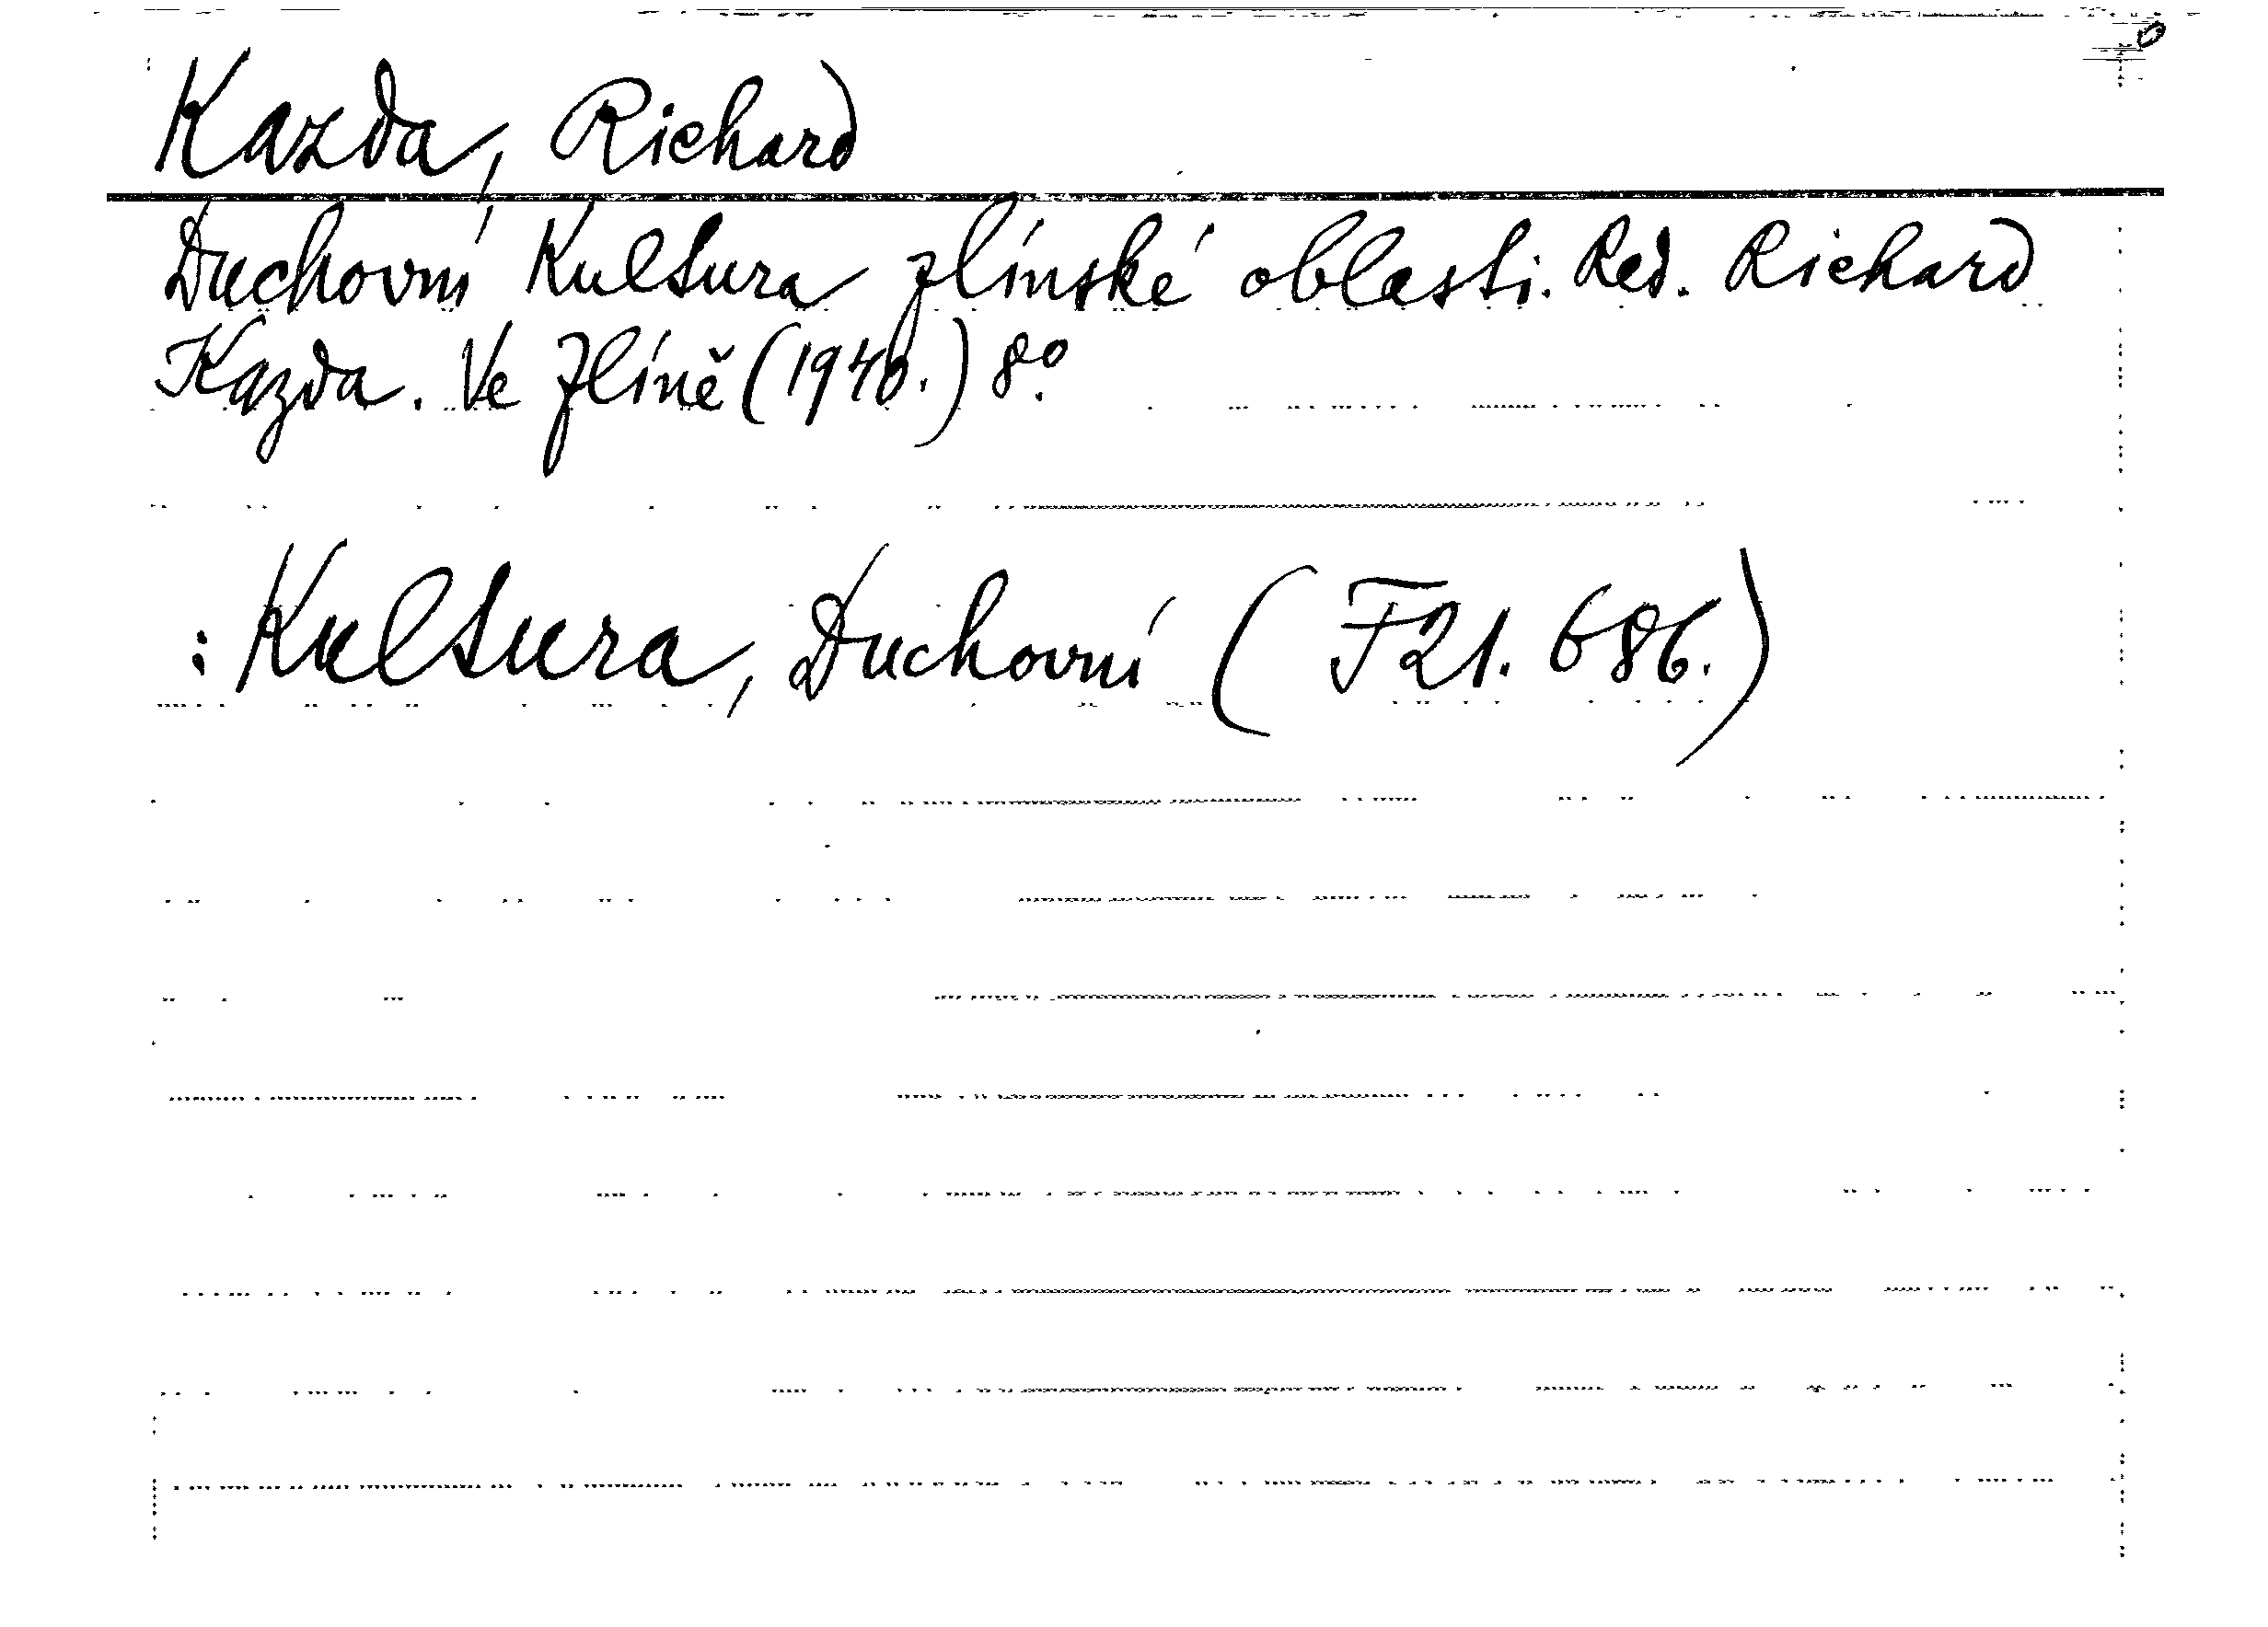 Kazda, Richard
Duchovní Kultura zlínské oblasti. Red. Richard
Kazda. Ve Zlíně (1940.) 8°.
: Kultura, Duchovní (F21.686.)